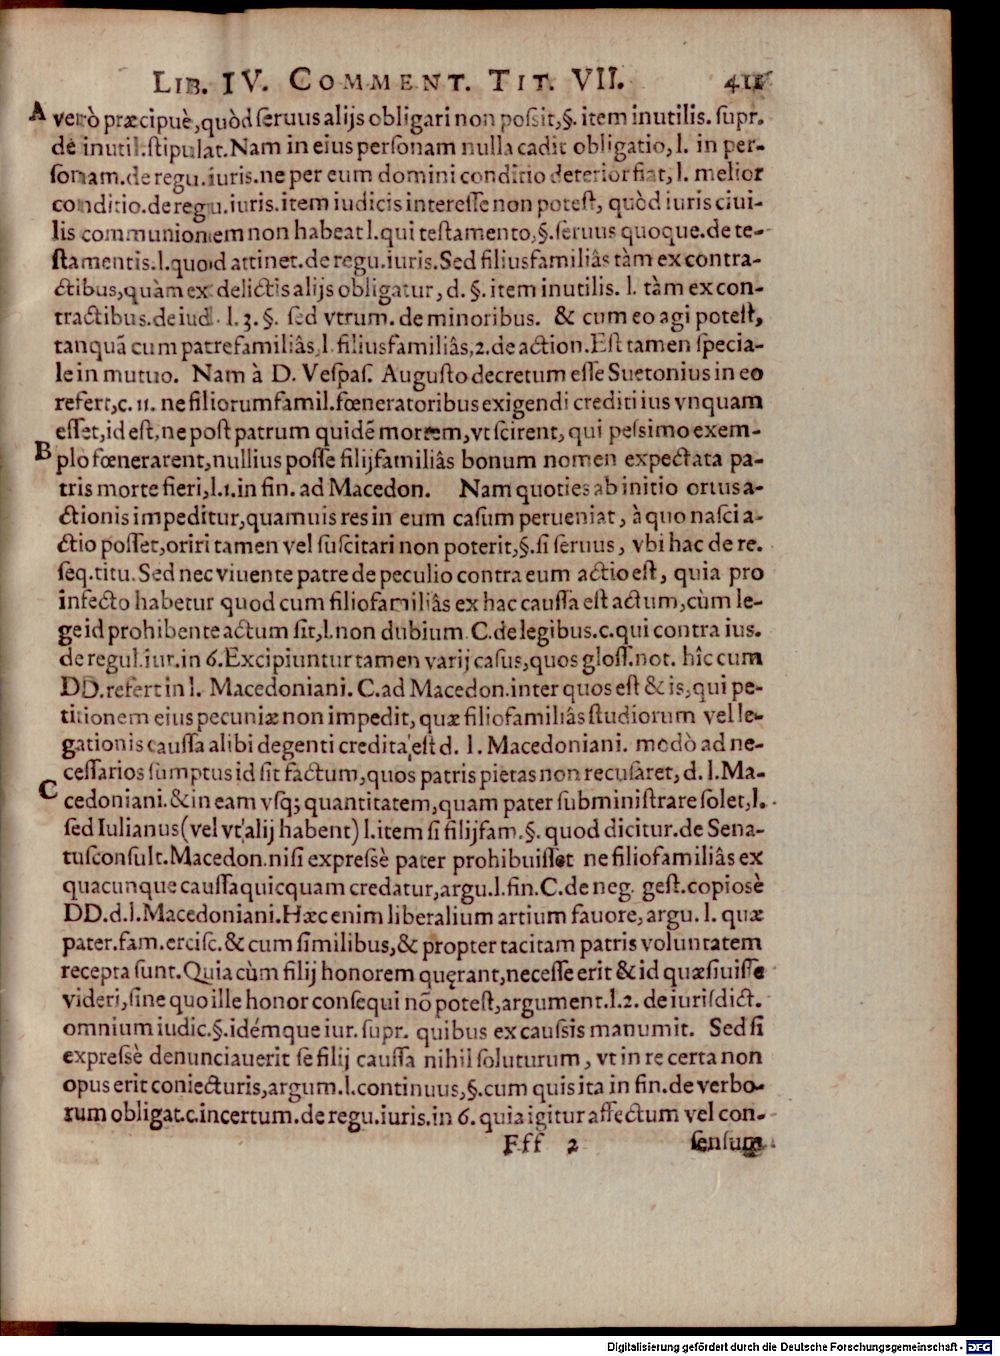 LIB. IV. COMMENT. TIT. VII. 411
A verò præcipuè, quòd seruus alijs obligari non possit, §. item inutilis. supr.
de inutil. stipulat. Nam in eius personam nulla cadit obligatio, l. in per-
sonam. de regu. iuris. ne per eum domini conditio deterior fiat, l. melior
conditio. de regu. iuris. item iudicis interesse non potest, quòd iuris ciui-
lis communionem non habeat l. qui testamento, §. seruus quoque. de te-
stamentis. l. quod attinet. de regu. iuris. Sed filiusfamiliâs tàm ex contra-
ctibus, quàm ex delictis alijs obligatur, d. §. item inutilis. l. tàm ex con-
tractibus. de iud. l. 3. §. sed vtrum. de minoribus. & cum eo agi potest,
tanquã cum patrefamiliâs, l. filiusfamiliâs, 2. de action. Est tamen specia-
le in mutuo. Nam à D. Vespas. Augusto decretum esse Suetonius in eo
refert, c. 11. ne filiorumfamil. fœneratoribus exigendi crediti ius vnquam
esset, id est, ne post patrum quidẽ mortem, vt scirent, qui pessimo exem-
B plo fœnerarent, nullius posse filijfamiliâs bonum nomen expectata pa-
tris morte fieri, l. 1. in fin. ad Macedon. Nam quoties ab initio ortus a-
ctionis impeditur, quamuis res in eum casum perueniat, à quo nasci a-
ctio posset, oriri tamen vel suscitari non poterit, §. si seruus, vbi hac de re.
seq. titu. Sed nec viuente patre de peculio contra eum actio est, quia pro
infecto habetur quod cum filiofamiliâs ex hac caussa est actum, cùm le-
ge id prohibente actum sit, l. non dubium C. de legibus. c. qui contra ius.
de regul. iur. in 6. Excipiuntur tamen varij casus, quos gloss. not. hîc cum
DD. refert in l. Macedoniani. C. ad Macedon. inter quos est & is, qui pe-
titionem eius pecuniæ non impedit, quæ filiofamiliâs studiorum vel le-
gationis caussa alibi degenti credita est d. l. Macedoniani. modò ad ne-
cessarios sumptus id sit factum, quos patris pietas non recusaret, d. l. Ma-
C cedoniani. & in eam vsq; quantitatem, quam pater subministrare solet, l.
sed Iulianus (vel vt alij habent) l. item si filijfam. §. quod dicitur. de Sena-
tusconsult. Macedon. nisi expressè pater prohibuisset ne filiofamiliâs ex
quacunque caussa quicquam credatur, argu. l. fin. C. de neg. gest. copiosè
DD. d. l. Macedoniani. Hæc enim liberalium artium fauore, argu. l. quæ
pater. fam. ercisc. & cum similibus, & propter tacitam patris voluntatem
recepta sunt. Quia cùm filij honorem quęrant, necesse erit & id quæsiuisse
videri, sine quo ille honor consequi nõ potest, argument. l. 2. de iurisdict.
omnium iudic. §. idémque iur. supr. quibus ex caussis manumit. Sed si
expressè denunciauerit se filij caussa nihil soluturum, vt in re certa non
opus erit coniecturis, argum. l. continuus, §. cum quis ita in fin. de verbo-
rum obligat. c. incertum. de regu. iuris. in 6. quia igitur affectum vel con-
Fff 2 sensum
Digitalisierung gefördert durch die Deutsche Forschungsgemeinschaft - DFG